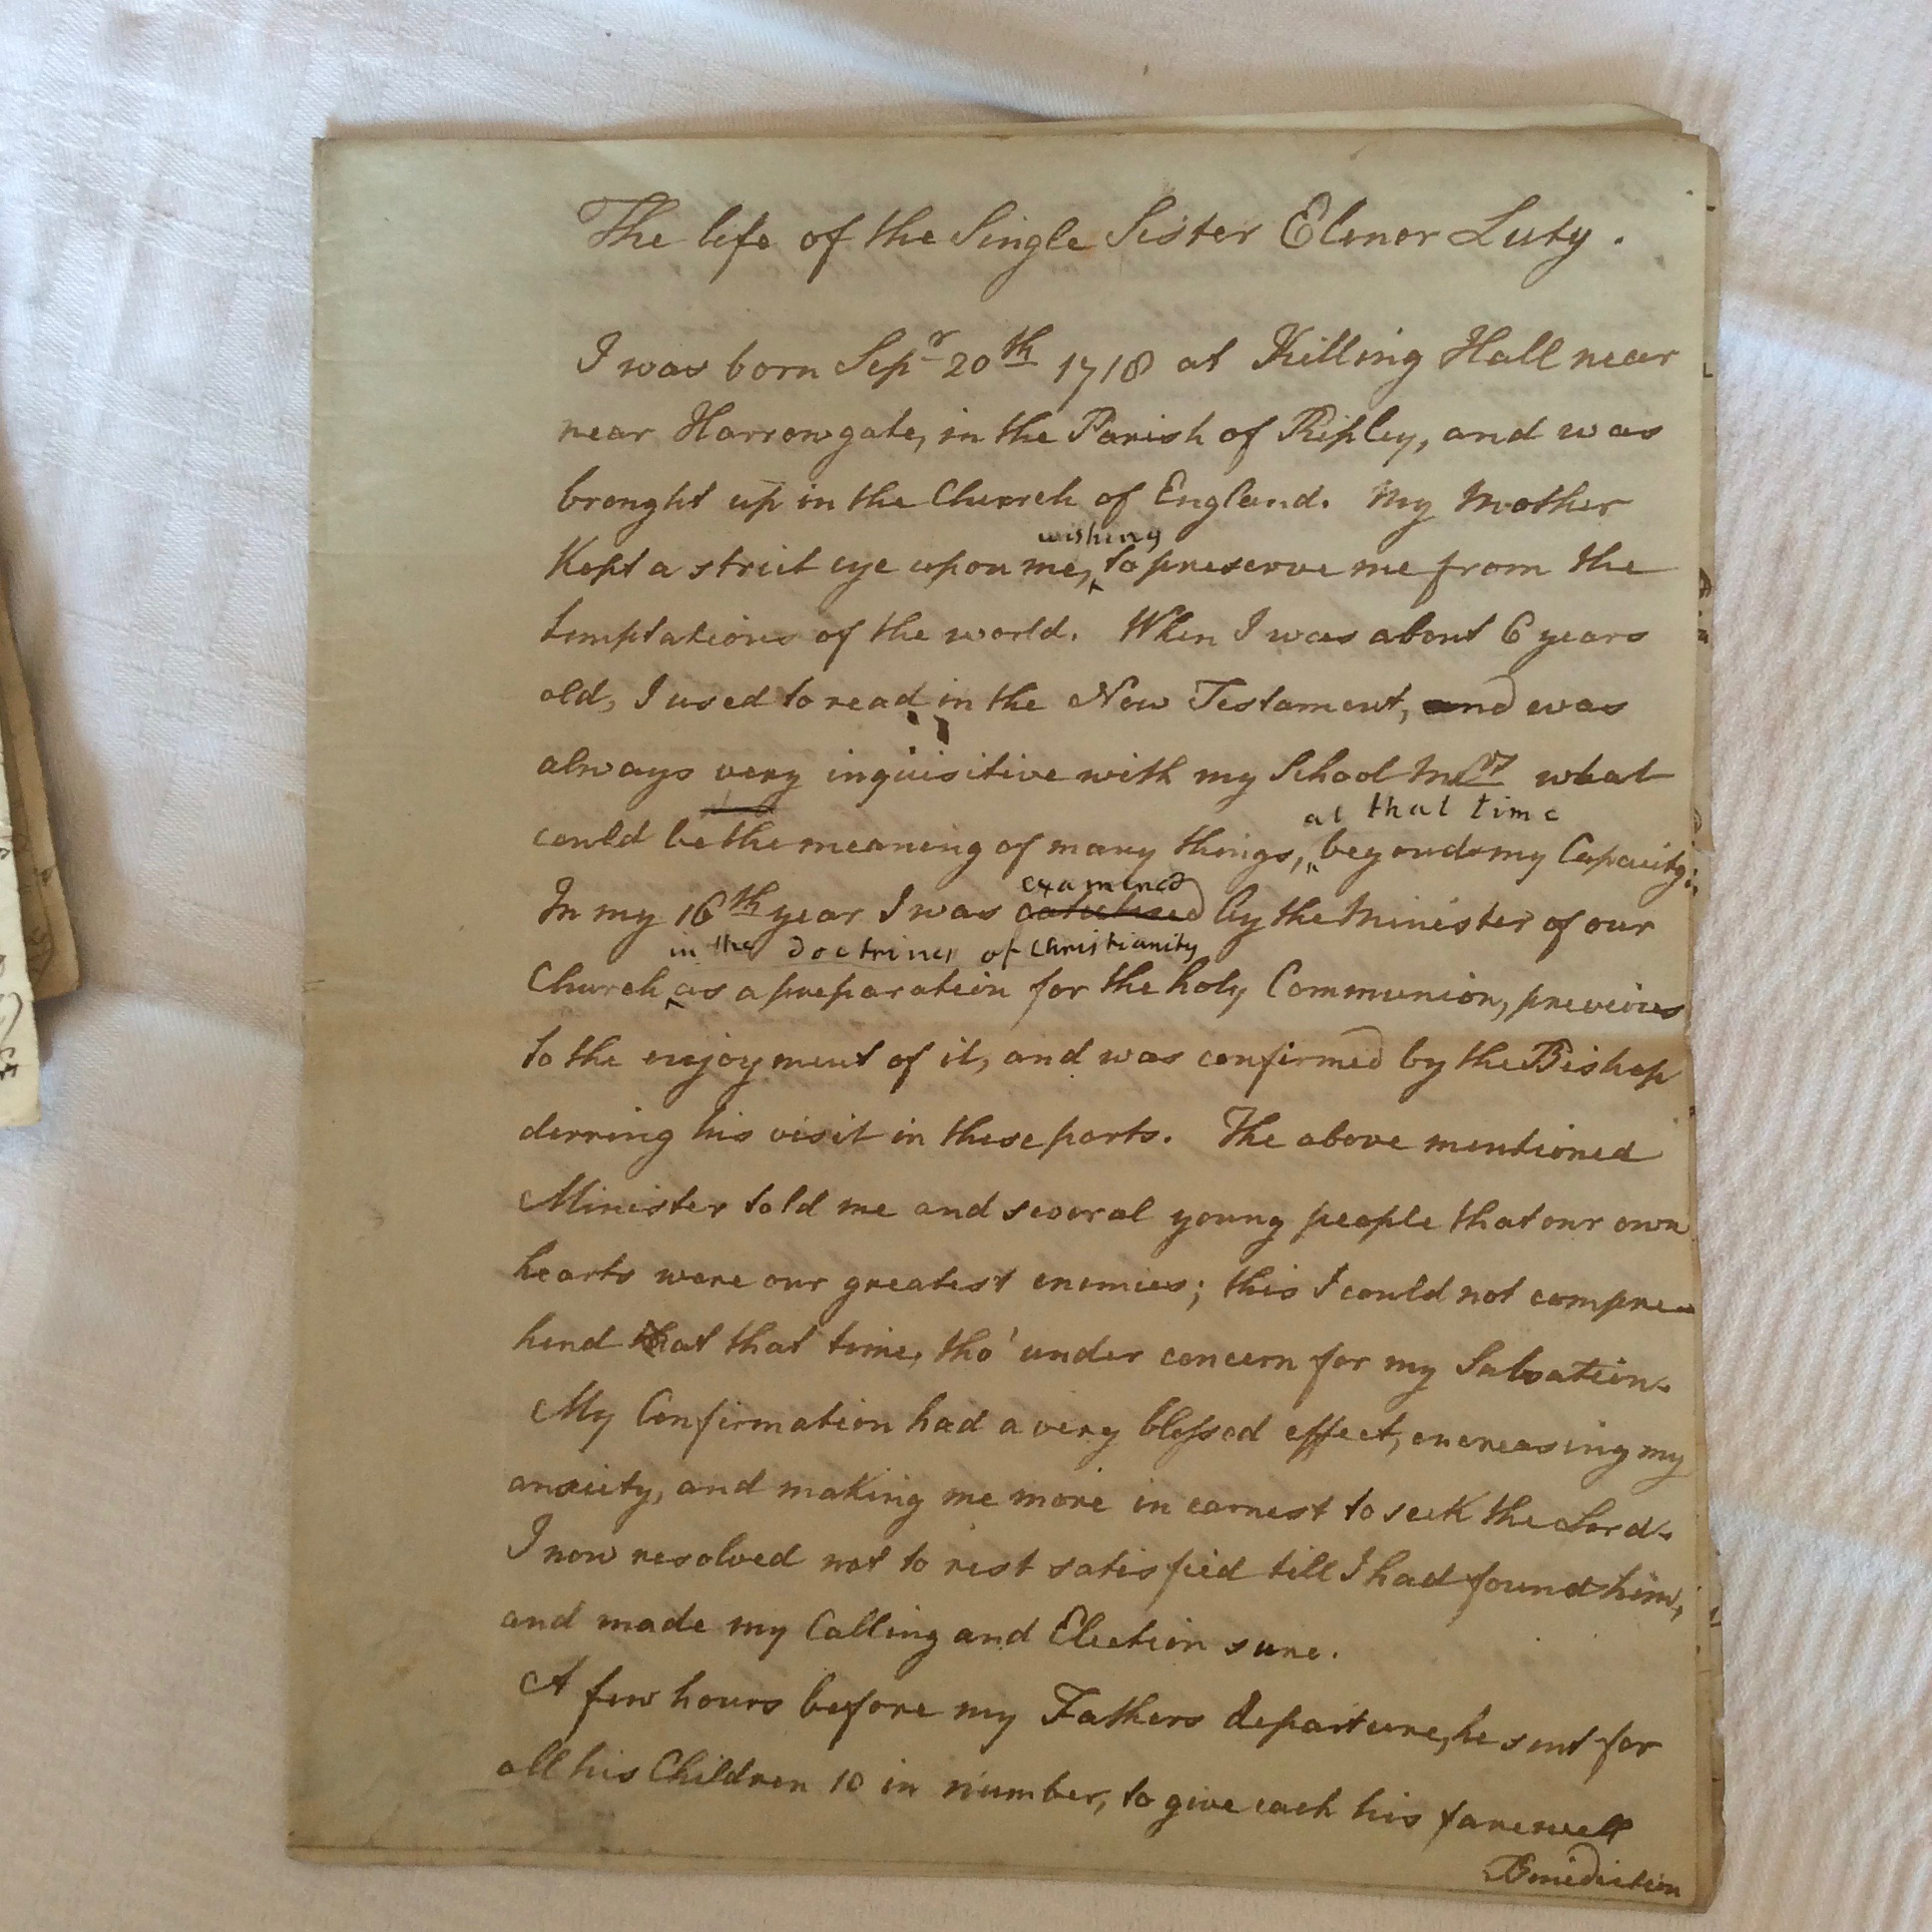 The life of the Single Sister Elener Luty.
I was born Sepr 20th 1718 at Killing Hall near
near Harrowgate, in the Parish of Ripley, and was
brought up in the Church of England. My Mother
wishing
Kept a strict eye upon me, to preserve me from the
temptations of the world. When I was about 6 years
old, I used to read in the New Testament, and was
always very inquisitive with my School what
at that time
could be the meaning of many things, beyond my Capacity.
examined
In my 16th year I was catechised by the Minister of our
in the doctrines of Christianity
Church as a preparation for the holy Communion, previous
to the enjoyment of it, and was confirmed by the Bishop
derring his visit in these parts. The above mentioned
Minister told me and several young people that our own
hearts were our greatest enemies; this I could not compre-
hend at that time, tho' under concern for my Salvation.
My Confirmation had a very blessed effect, encreasing my
anxiety, and making me more in earnest to seek the Lord.
I now resolved not to rest satisfied till I had found him,
and made my Calling and Election sure.
A few hours before my Fathers departure, he sent for
all his Children 10 in number, to give each his farewell
Benediction